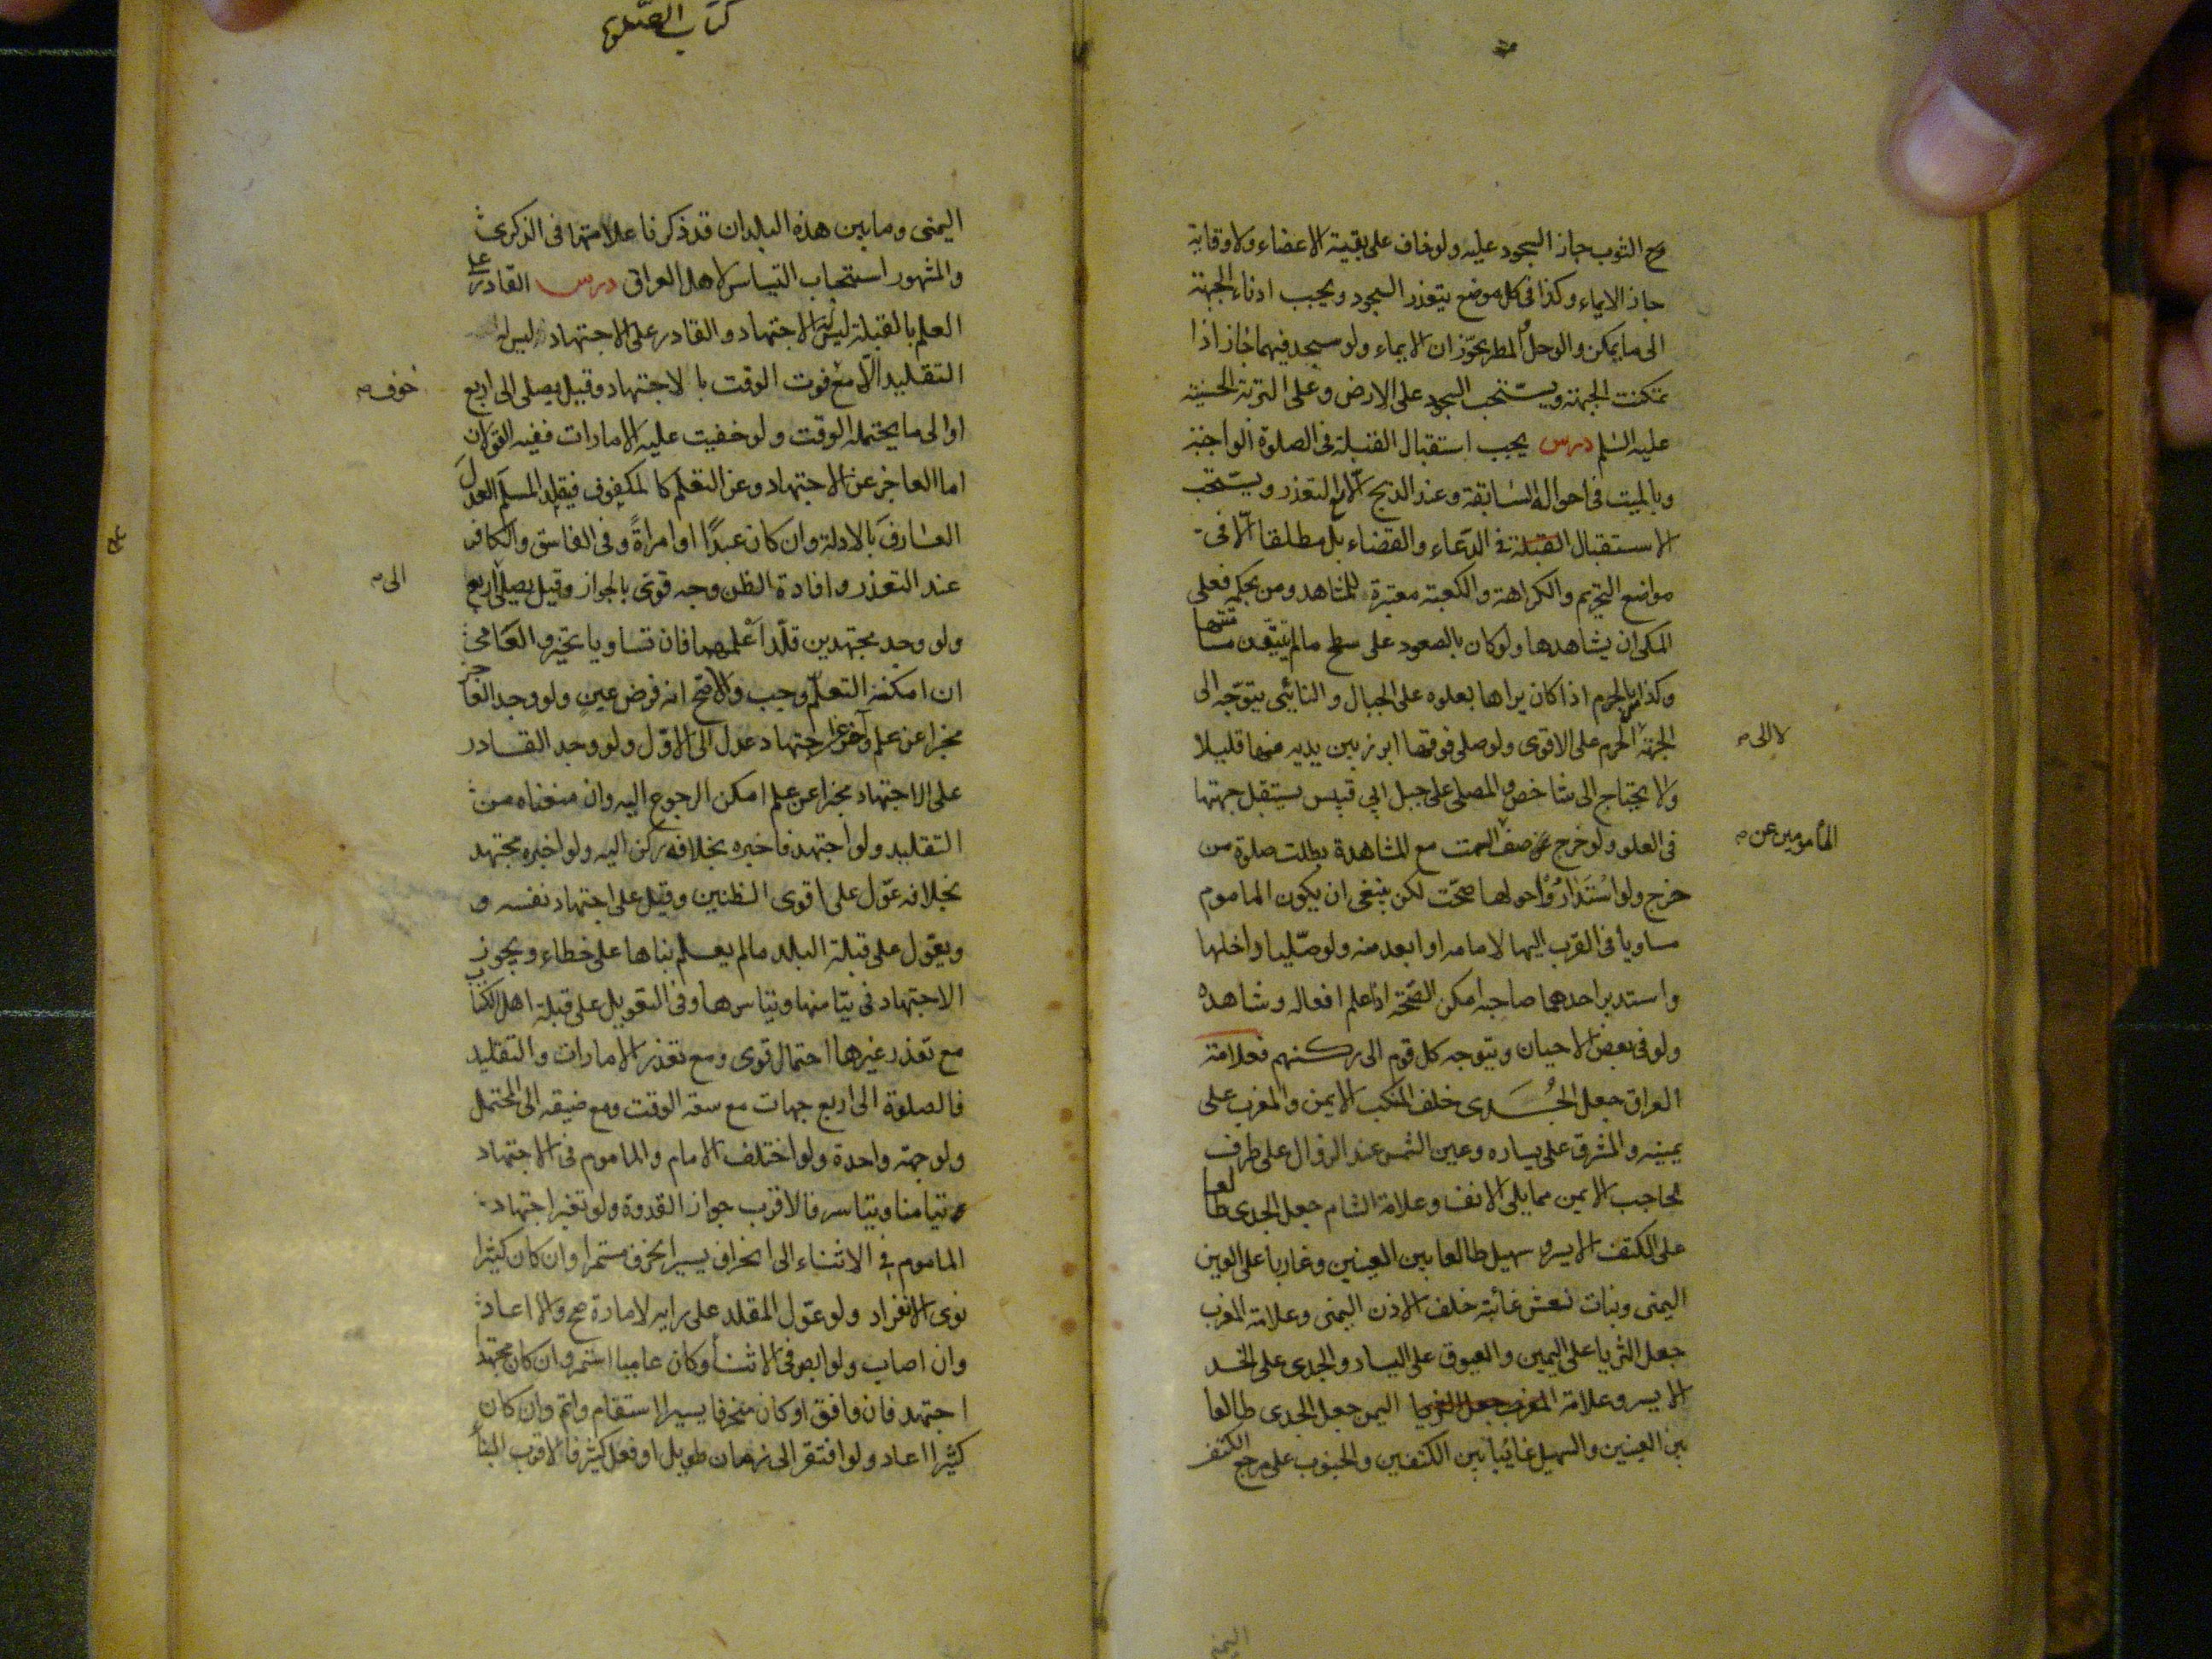 مع الثوب جاز السجود عليه ولو خاف على بقية الاعضاء ولا وقاية
جاز الايماء وكذا فى كل موضع يتعذر السجود ويجب ادناء الجبهة
الى ما يمكن والوحل والمطر يجوّزان الايماء ولو سجد فيهما جاز اذا
تمكنت الجبهة ويستحب السجود على الارض وعلى التربة الحسينية
عليه السلم درس يجب استقبال القبلة فى الصلوة الواجبة
وبالميت فى احواله السابقة وعند الذبح الا مع التعذر ويستحب
الاستقبال القبلة فى الدعاء والقضاء بل مطلقا الا فى
مواضع التحريم والكراهة والكعبة معتبرة للمشاهد ومن بحكمه فعلى
المكى ان يشاهدها ولو كان بالصعود على سطح ما لم يتيقن مسامتتها
وكذا من بالحرم اذا كان يراها بعلوه على الجبال والنايى يتوجه الى
الجهة الحرم على الاقوى ولو صلى فوقها ابرز بين يديه منها قليلا
لا الى
ولا يحتاج الى شاخص والمصلى على جبل ابي قبيس يستقبل جهتها
فى العلو ولو خرج صف السمت مع المشاهدة بطلت صلوة من
المأمومين عن
خرج ولو استداروا حولها صحّت لكن ينبغى ان يكون الماموم
مساويا فى القرب اليها لامامه او ابعد منه ولو صليا داخلها
واستدبر احدهما صاحبه امكن الصّحّة اذا علم افعاله وشاهده
ولو فى بعض الاحيان ويتوجه كل قوم الى ركنهم فعلامة
العراق جعل الجُدى خلف المنكب الايمن والمغرب على
يمينه والمشرق على يساره وعين الشمس عند الزوال على طرف
الحاجب الايمن مما يلى الانف وعلامة الشام جعل الجدى طالعا
على الكتف الايسر و سهيل طالعا بين العينين وغاربا على العين
اليمنى وبنات نعش غائبة خلف الاذن اليمنى وعلامة المغرب
جعل الثريا على اليمين والعيوق على اليسار والجدى على الخد
الايسر وعلامة اليمن جعل الجدى طالعا
بين العينين والسهيل غائبا بين الكتفين والجنوب على مرجع الكتف
اليمنى
كتاب الصلوة
اليمنى وما بين هذه البلدان قد ذكرنا علامتها فى الذكرى
والمشهور استحباب التياسر لاهل العراق درس القادر على
العلم بالقبلة ليس له الاجتهاد والقادر على الاجتهاد ليس له
التقليد الا مع فوت الوقت بالاجتهاد وقيل يصلى الى اربع
خوف
او الى ما يحتمله الوقت ولو خفيت عليه الامارات ففيه القولان
اما العاجز عن الاجتهاد وعن التعلم كالمكفوف فيقلد المسلم العدل
العارف بالادلة وان كان عبدًا او امراةً وفى الفاسق والكافر
عند التعذر وافادة الظن وجه قوى بالجواز وقيل يصلى اربع
الى
ولو وجد مجتهدين قلّد اعلمهما فان تساويا تخير والعامى
ان امكنه التعلم وجب والاصح انه فرض عين ولو وجد العاجز
مخبرا عن علم وآخر عن اجتهاد عدل الى الاول ولو وجد القادر
على الاجتهاد مخبرا عن علم امكن الرجوع اليه وان منعناه من
التقليد ولو اجتهد فاخبره بخلافه ركن اليه ولو اخبره مجتهد
بخلافه عوّل على اقوى الظنين وقيل على اجتهاد نفسه و
ويعوّل على قبلة البلد ما لم يعلم بناها على خطاء ويجوز
الاجتهاد فى تيامنها وتياسرها وفى التعويل على قبلة اهل الكتاب
مع تعذر غيرها احتمال قوى ومع تعذر الامارات والتقليد
فالصلوة الى اربع جهات مع سعة الوقت ومع ضيقه الى المحتمل
ولو جهة واحدة ولو اختلف الامام والماموم فى الاجتهاد
تيامنا وتياسر فالاقرب جواز القدوة ولو تغير اجتهاد
الماموم فى الاثناء الى انحراف يسير انحرف مستمرا وان كان كثيرا
نوى الانفراد ولو عوّل المقلد على رايه لامارة صح والا اعاد
وان اصاب ولو ابصر فى الاثنا وكان عاميا استمر وان كان مجتهدا
اجتهد فان وافق او كان منحرفا يسيرا استقام واتم وان كان
كثيرا اعاد ولو افتقر الى زمان طويل او فعل كثير فالاقرب البنا